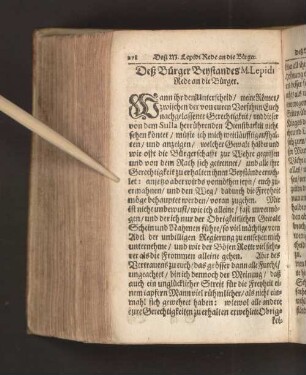 218 Deß M. Lepidi Rede an die Bürger.
Deß Bürger Beystandes M. Lepidi
Rede an die Bürger.
Wann ihr den Unterscheid / meine Römer/
zwischen der von euren Vorfahren Euch
nachgelassener Gerechtigkeit / und dieser
von dem Sulla herrührenden Dienstbarkeit nicht
sehen köntet / müste ich mich weitläufftig auffhal-
ten / und anzeigen / welcher Gewalt halben und
wie offt die Bürgerschafft zur Wehre gegriffen
und von dem Rath sich getrennet / und als ihre
Gerechtigkeit zu erhalten ihnen Beystände erweh-
let: anjetzo aber wird es vonnöthen seyn / euch zu er-
mahnen / und den Weg / dadurch die Freyheit
möge behauptet werden / voran zugehen. Mir
ist nicht unbewust / wie ich alleine / fast unvermö-
gen / und der ich nur der Obrigkeitlichen Gewalt
Schein und Nahmen führe / so viel mächtige von
Adel der unbilligen Regierung zu entsetzen mich
unternehme / und wie der Bösen Rott viel siche-
rer als die Frommen alleine gehen. Aber des
Vertrauens zu euch / das grösser dann alle Furcht/
ungeachtet / bin ich dennoch der Meinung / daß
auch ein unglücklicher Streit für die Freyheit ei-
nem tapffren Mann viel rühmlicher / als nicht ein-
mahl sich gewehret haben: wiewol alle andere
eure Gerechtigkeiten zu erhalten erwehlte Obrig-
kei-